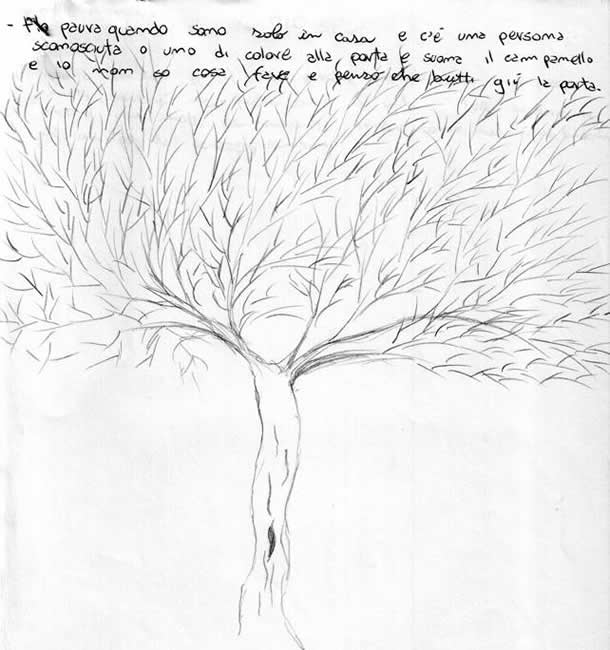 - Ho paura quando sono solo in casa e c'è una persona
sconosciuta o uno di colore alla porta e suona il campanello
e io non so cosa fare e penso che butti giù la porta.